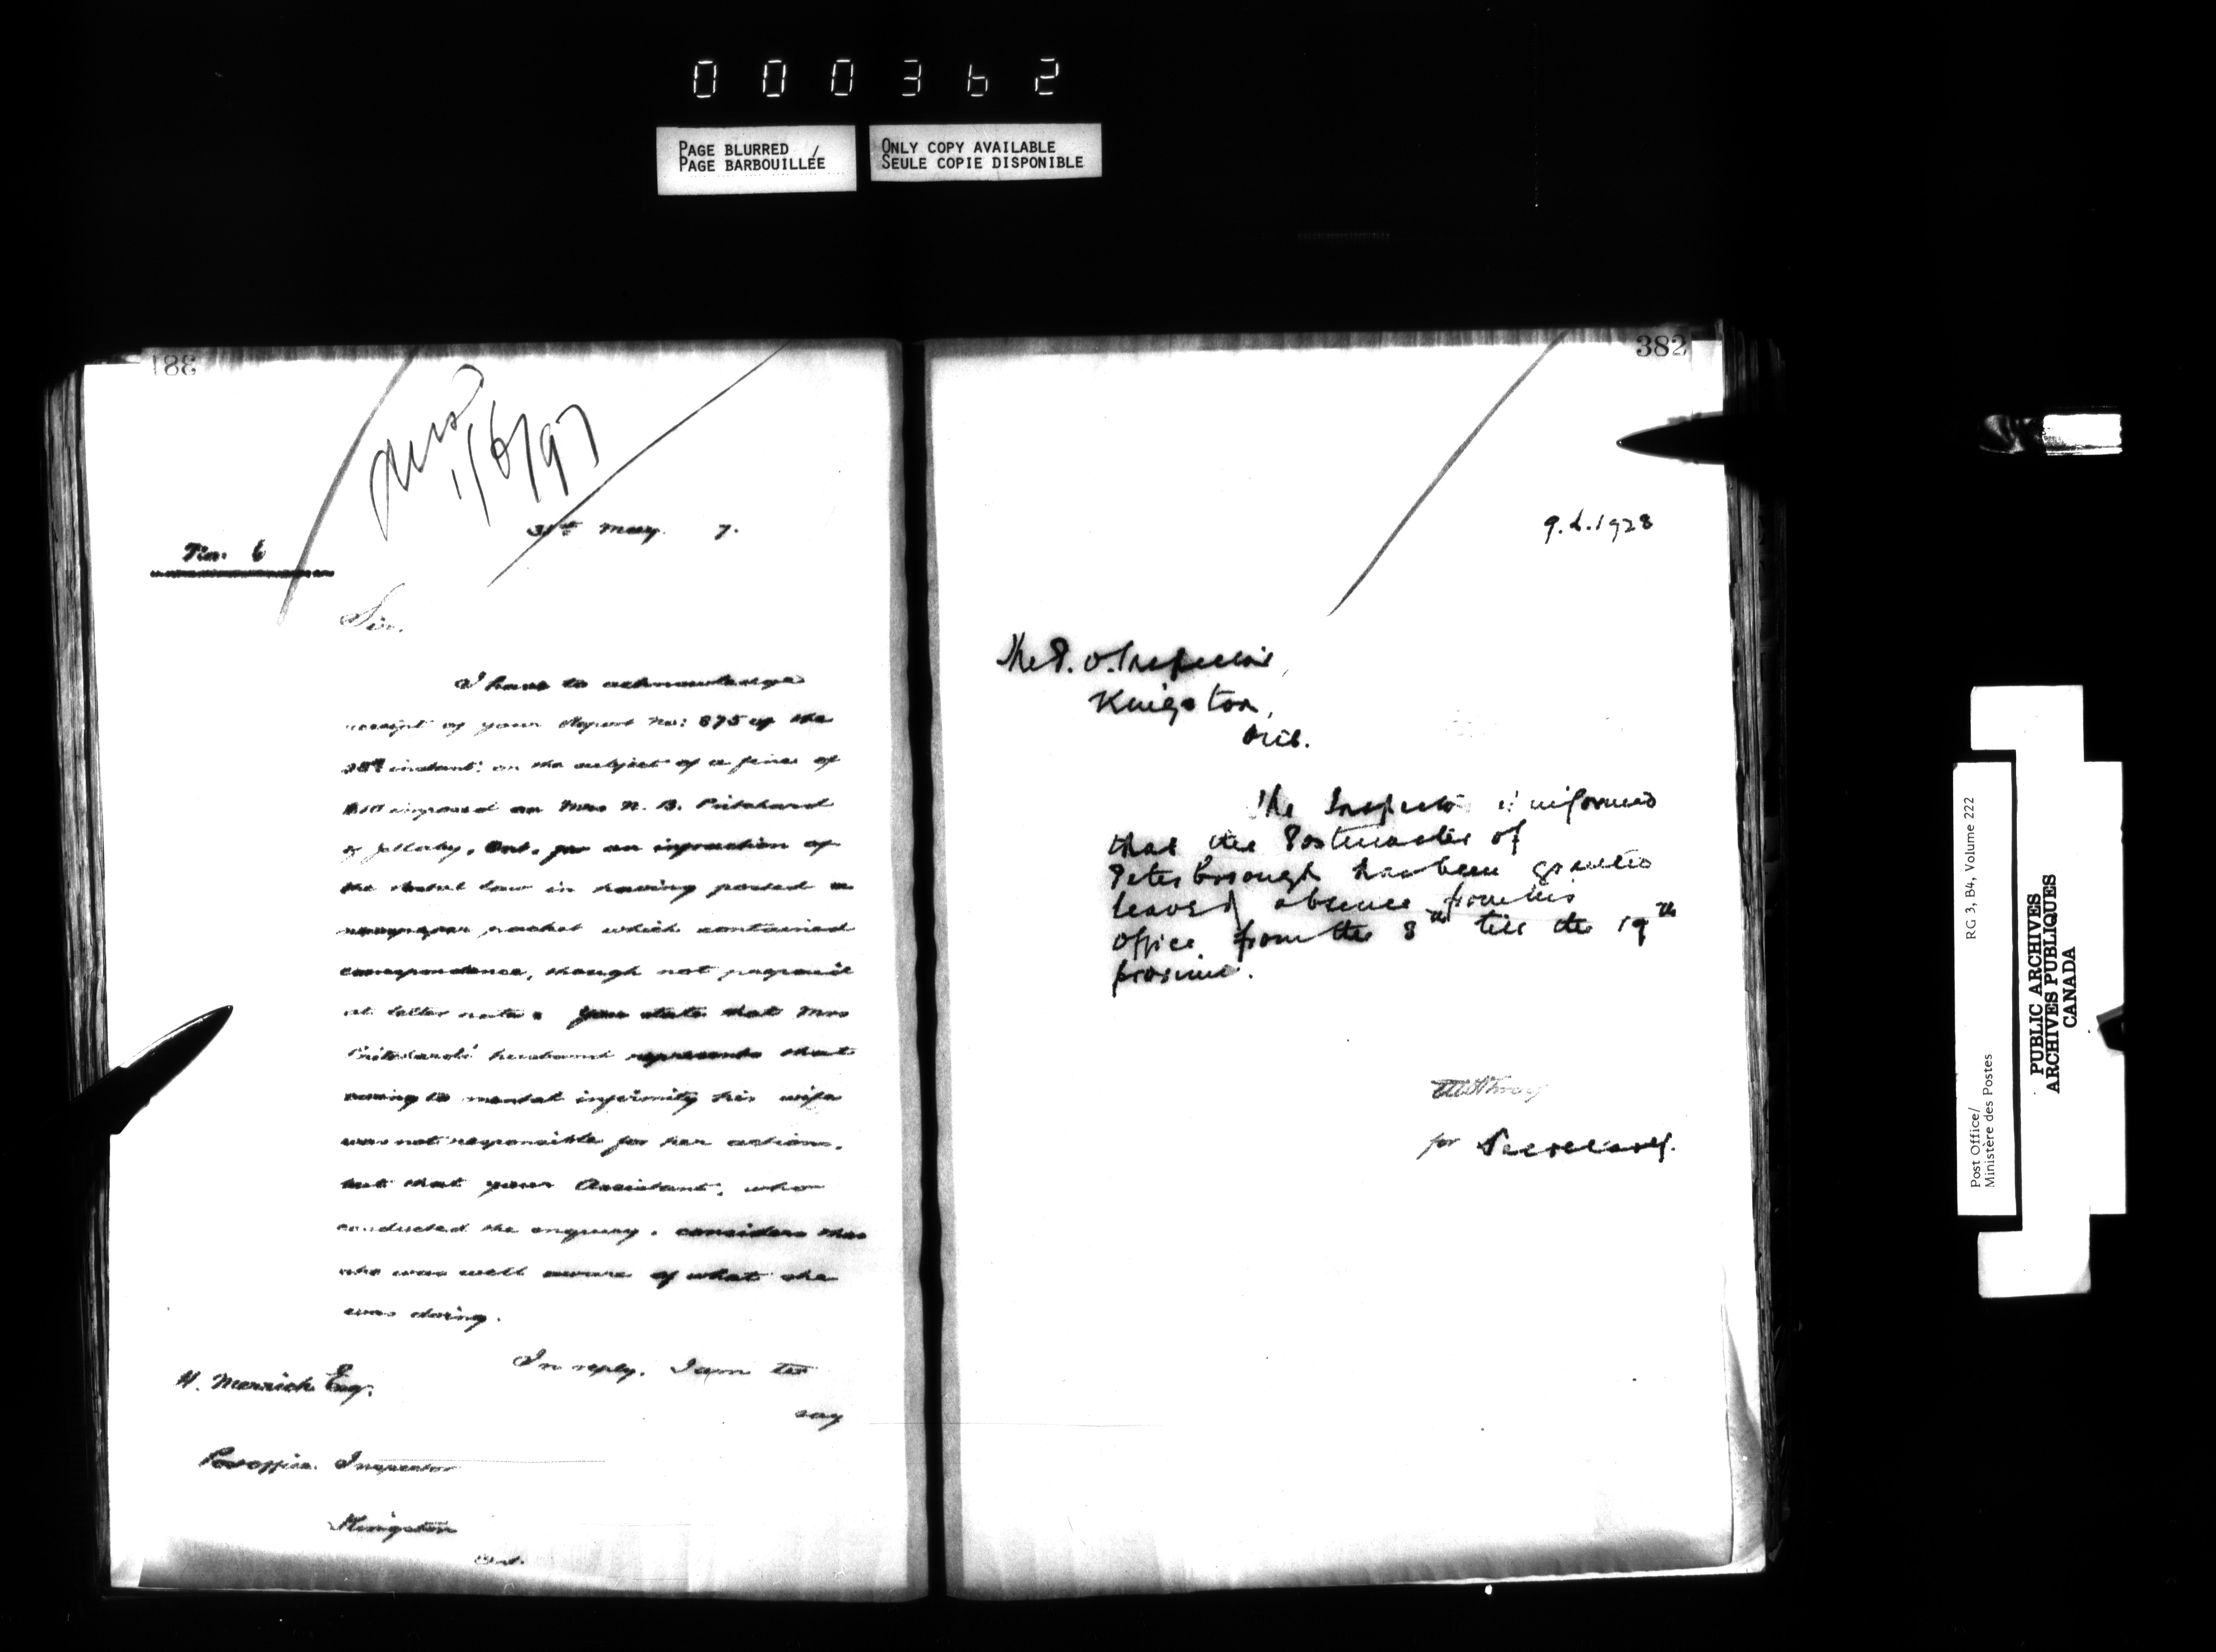 000362
PAGE BLURRED /
PAGE BARBOUILLÉE
ONLY COPY AVAILABLE
SEULE COPIE DISPONIBLE
381
1/6/97
31st May. 7.
Fin. 6
Sir,
I have to acknowledge
receipt of your Report No: 875 of the
28th instant: on the subject of a fine of
$10 imposed on Mrs N. B. Pritchard
of Jellaby, Ont. for an infraction of
the Postal law in having posted a
newspaper packet which contained
correspondence, though not prepaid
at letter rate. You state that Mrs
Pritchard's husband represents that
owing to mental infirmity his wife
was not responsible for her actions,
but that your Assistant, who
conducted the enquiry, considers that
she was well aware of what she
was doing.
In reply, I am to
say
H. Merrick Esq.
Post office Inspector
Kingston
Ont.
382
9.L.1928
The P.O. Inspector,
Kingston,
Ont.
The Inspector is informed
that the Postmaster of
Peterborough has been granted
leave of absence from his
Office from the 8th till the 19th
proximo.
for Secretary.
Post Office/
Ministère des Postes
RG 3, B4, Volume 222
PUBLIC ARCHIVES
ARCHIVES PUBLIQUES
CANADA